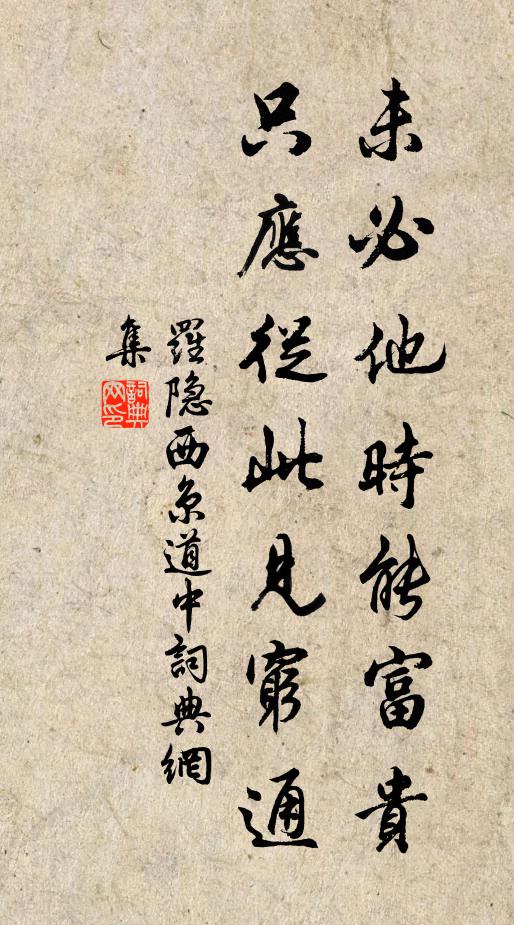 未必他時能富貴
只應從此見窮通
羅隐西京道中詞典網
集
詞典網印